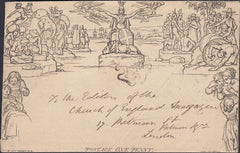 To the Editors of the
Church of England Magazine
17.
London
POSTAGE ONE PENNY.